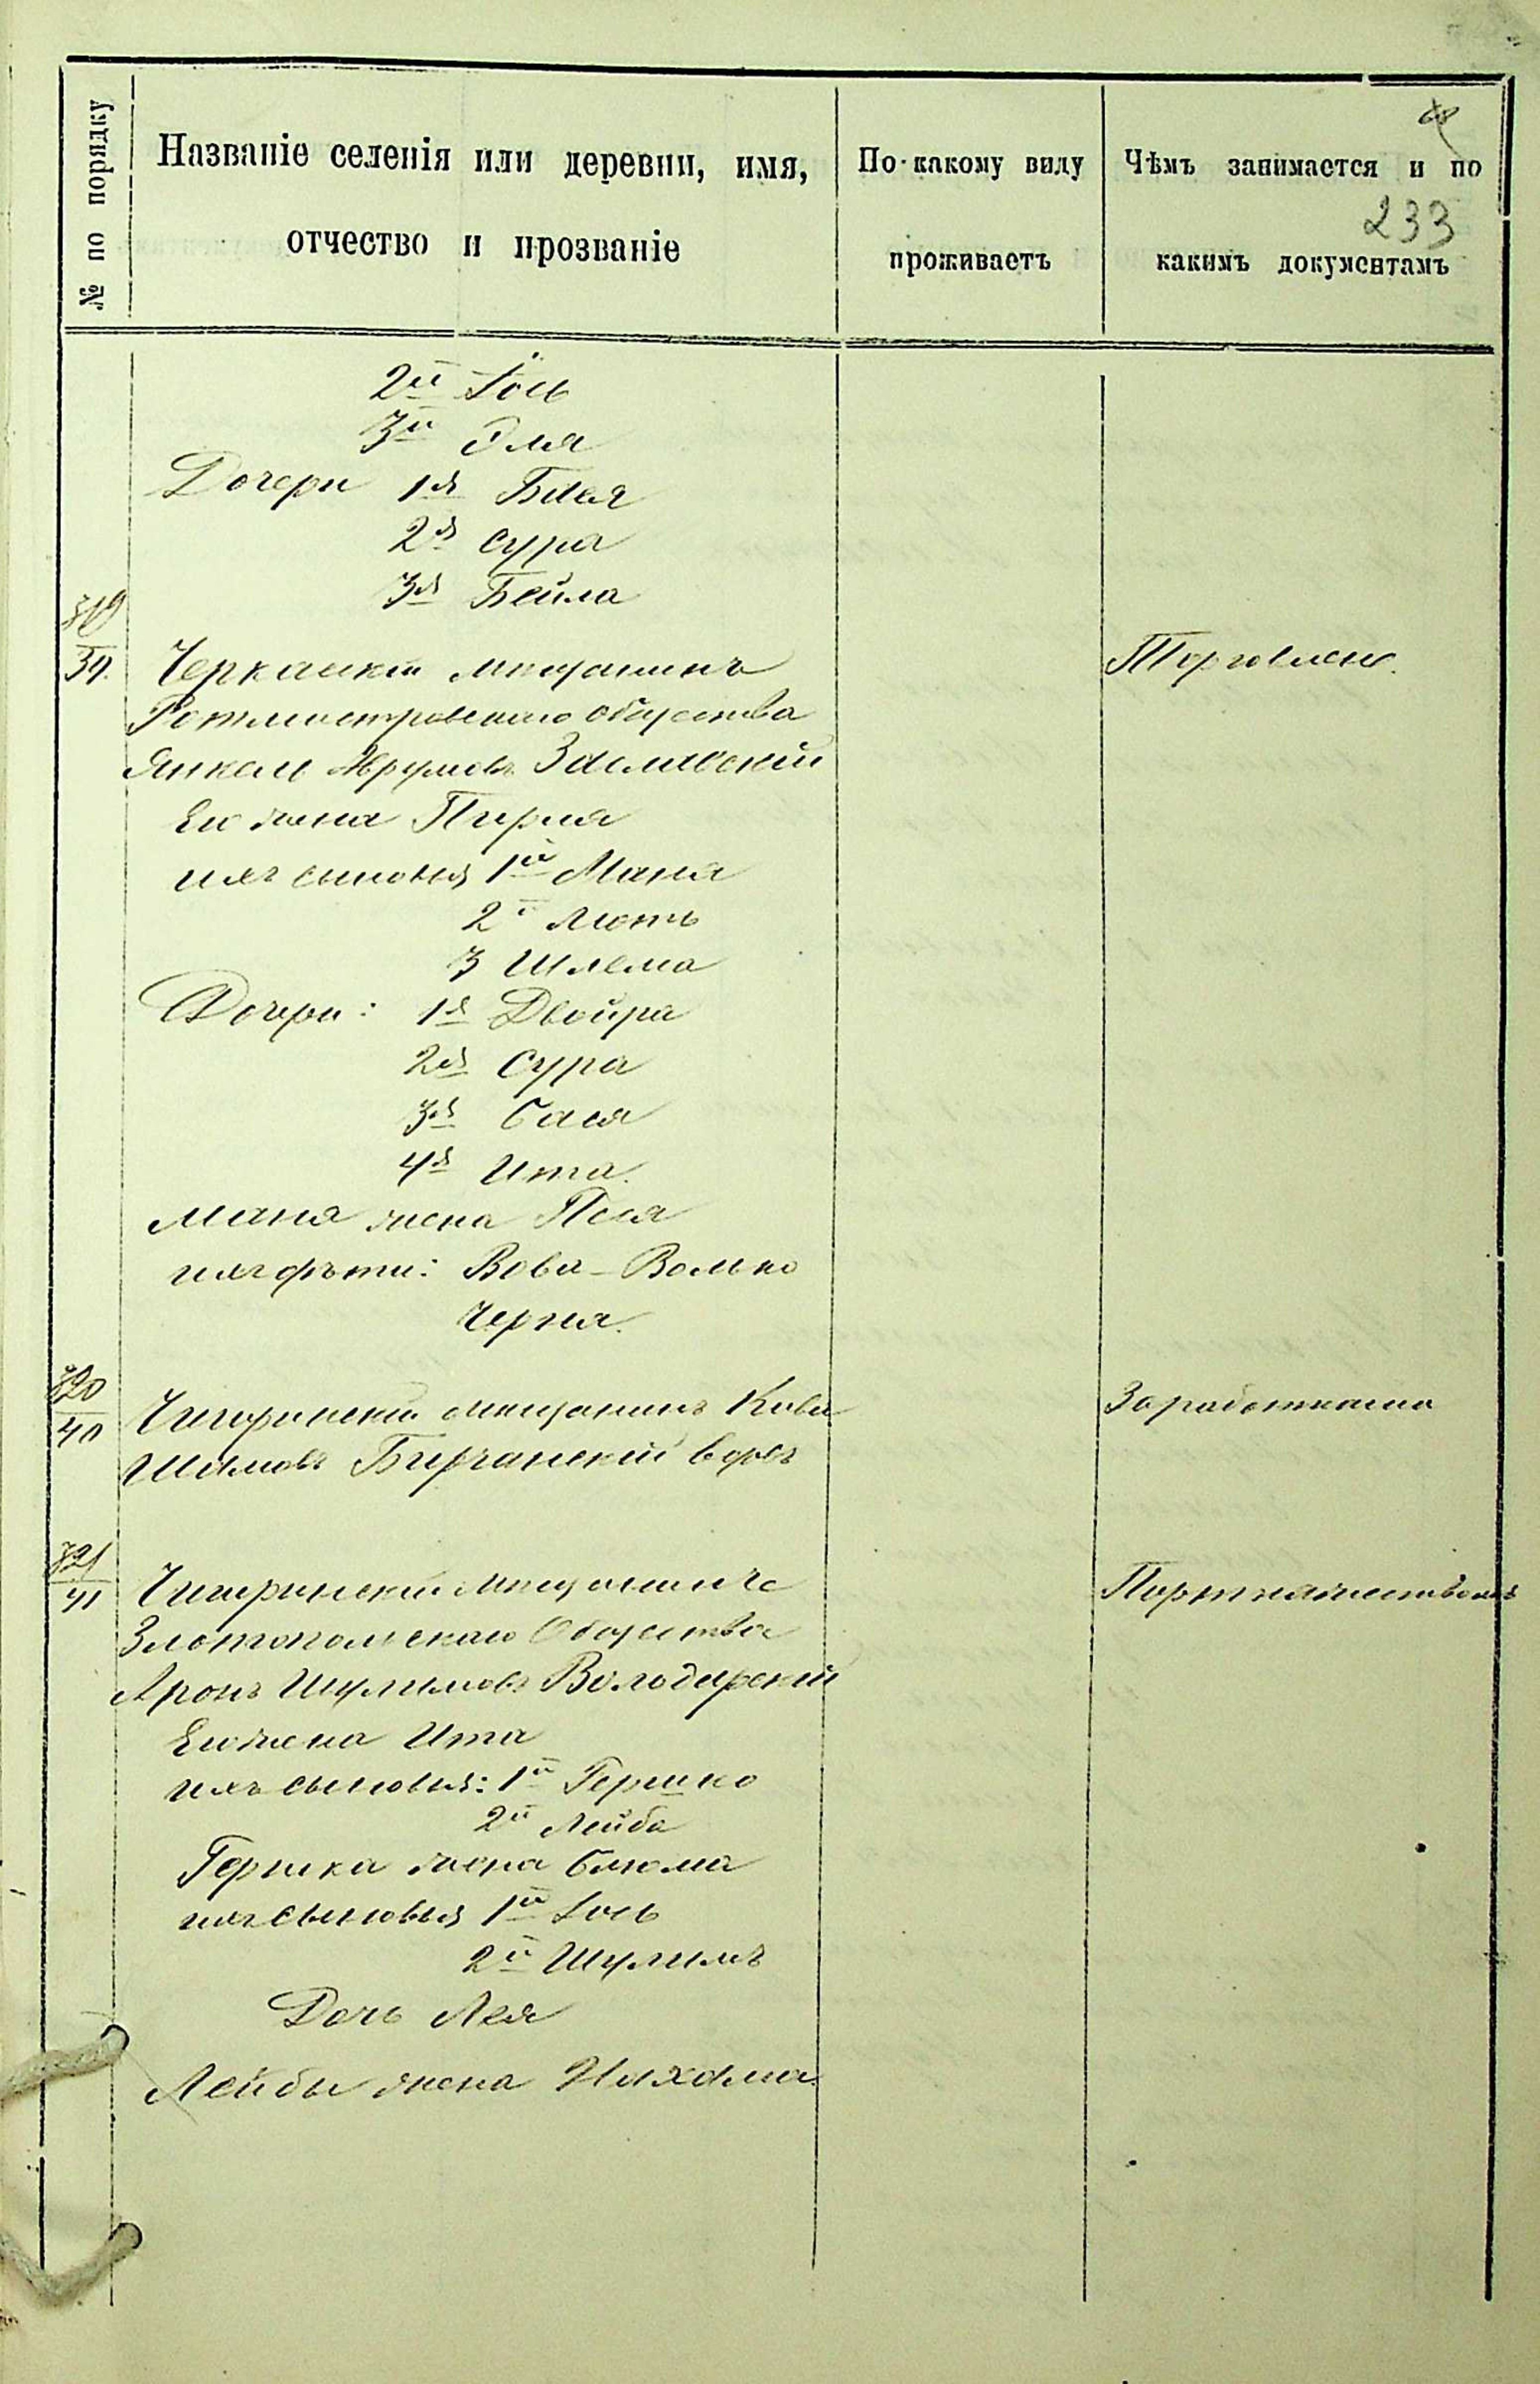 № по порядку
Названіе селенія или деревни, имя,
отчество и прозваніе
По какому виду
проживаетъ
Чѣмъ занимается и по
какимъ документамъ
233
2й Іось
3й Эля
Дочери 1я Бася
2я Сура
3я Бейла
819
39.
Черкаскій мищанинъ
Торговлею.
Ротмистровскаго общества
Янкель Аврумовъ Заславскій
Его жена Пирля
ихъ сыновья 1й Маня
2й Мотъ
3 Шлема
Дочери: 1я Двойра
2я Сура
3я Бася
4я Ита.
Маня жена Песя
ихъ дѣти: Вова-Волько
Черня.
820
40
Чигиринскій мищанинъ Кива
Заработками
Шимовъ Бирчанскій вдовъ
821
41
Чигиринскій Мищанинъ
Портняжествомъ
Златопольскаго Общества
Аронъ Шулимовъ Володарскій
Его жена Ита
ихъ сыновья: 1й Гершко
2й Лейба
Гершка жена Блюма
ихъ сыновья 1й Іось
2й Шулимъ
Дочь Лея
Лейбы жена Нихама.